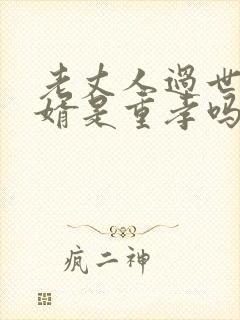 老丈人过世
婿是重孝吗
疯二神